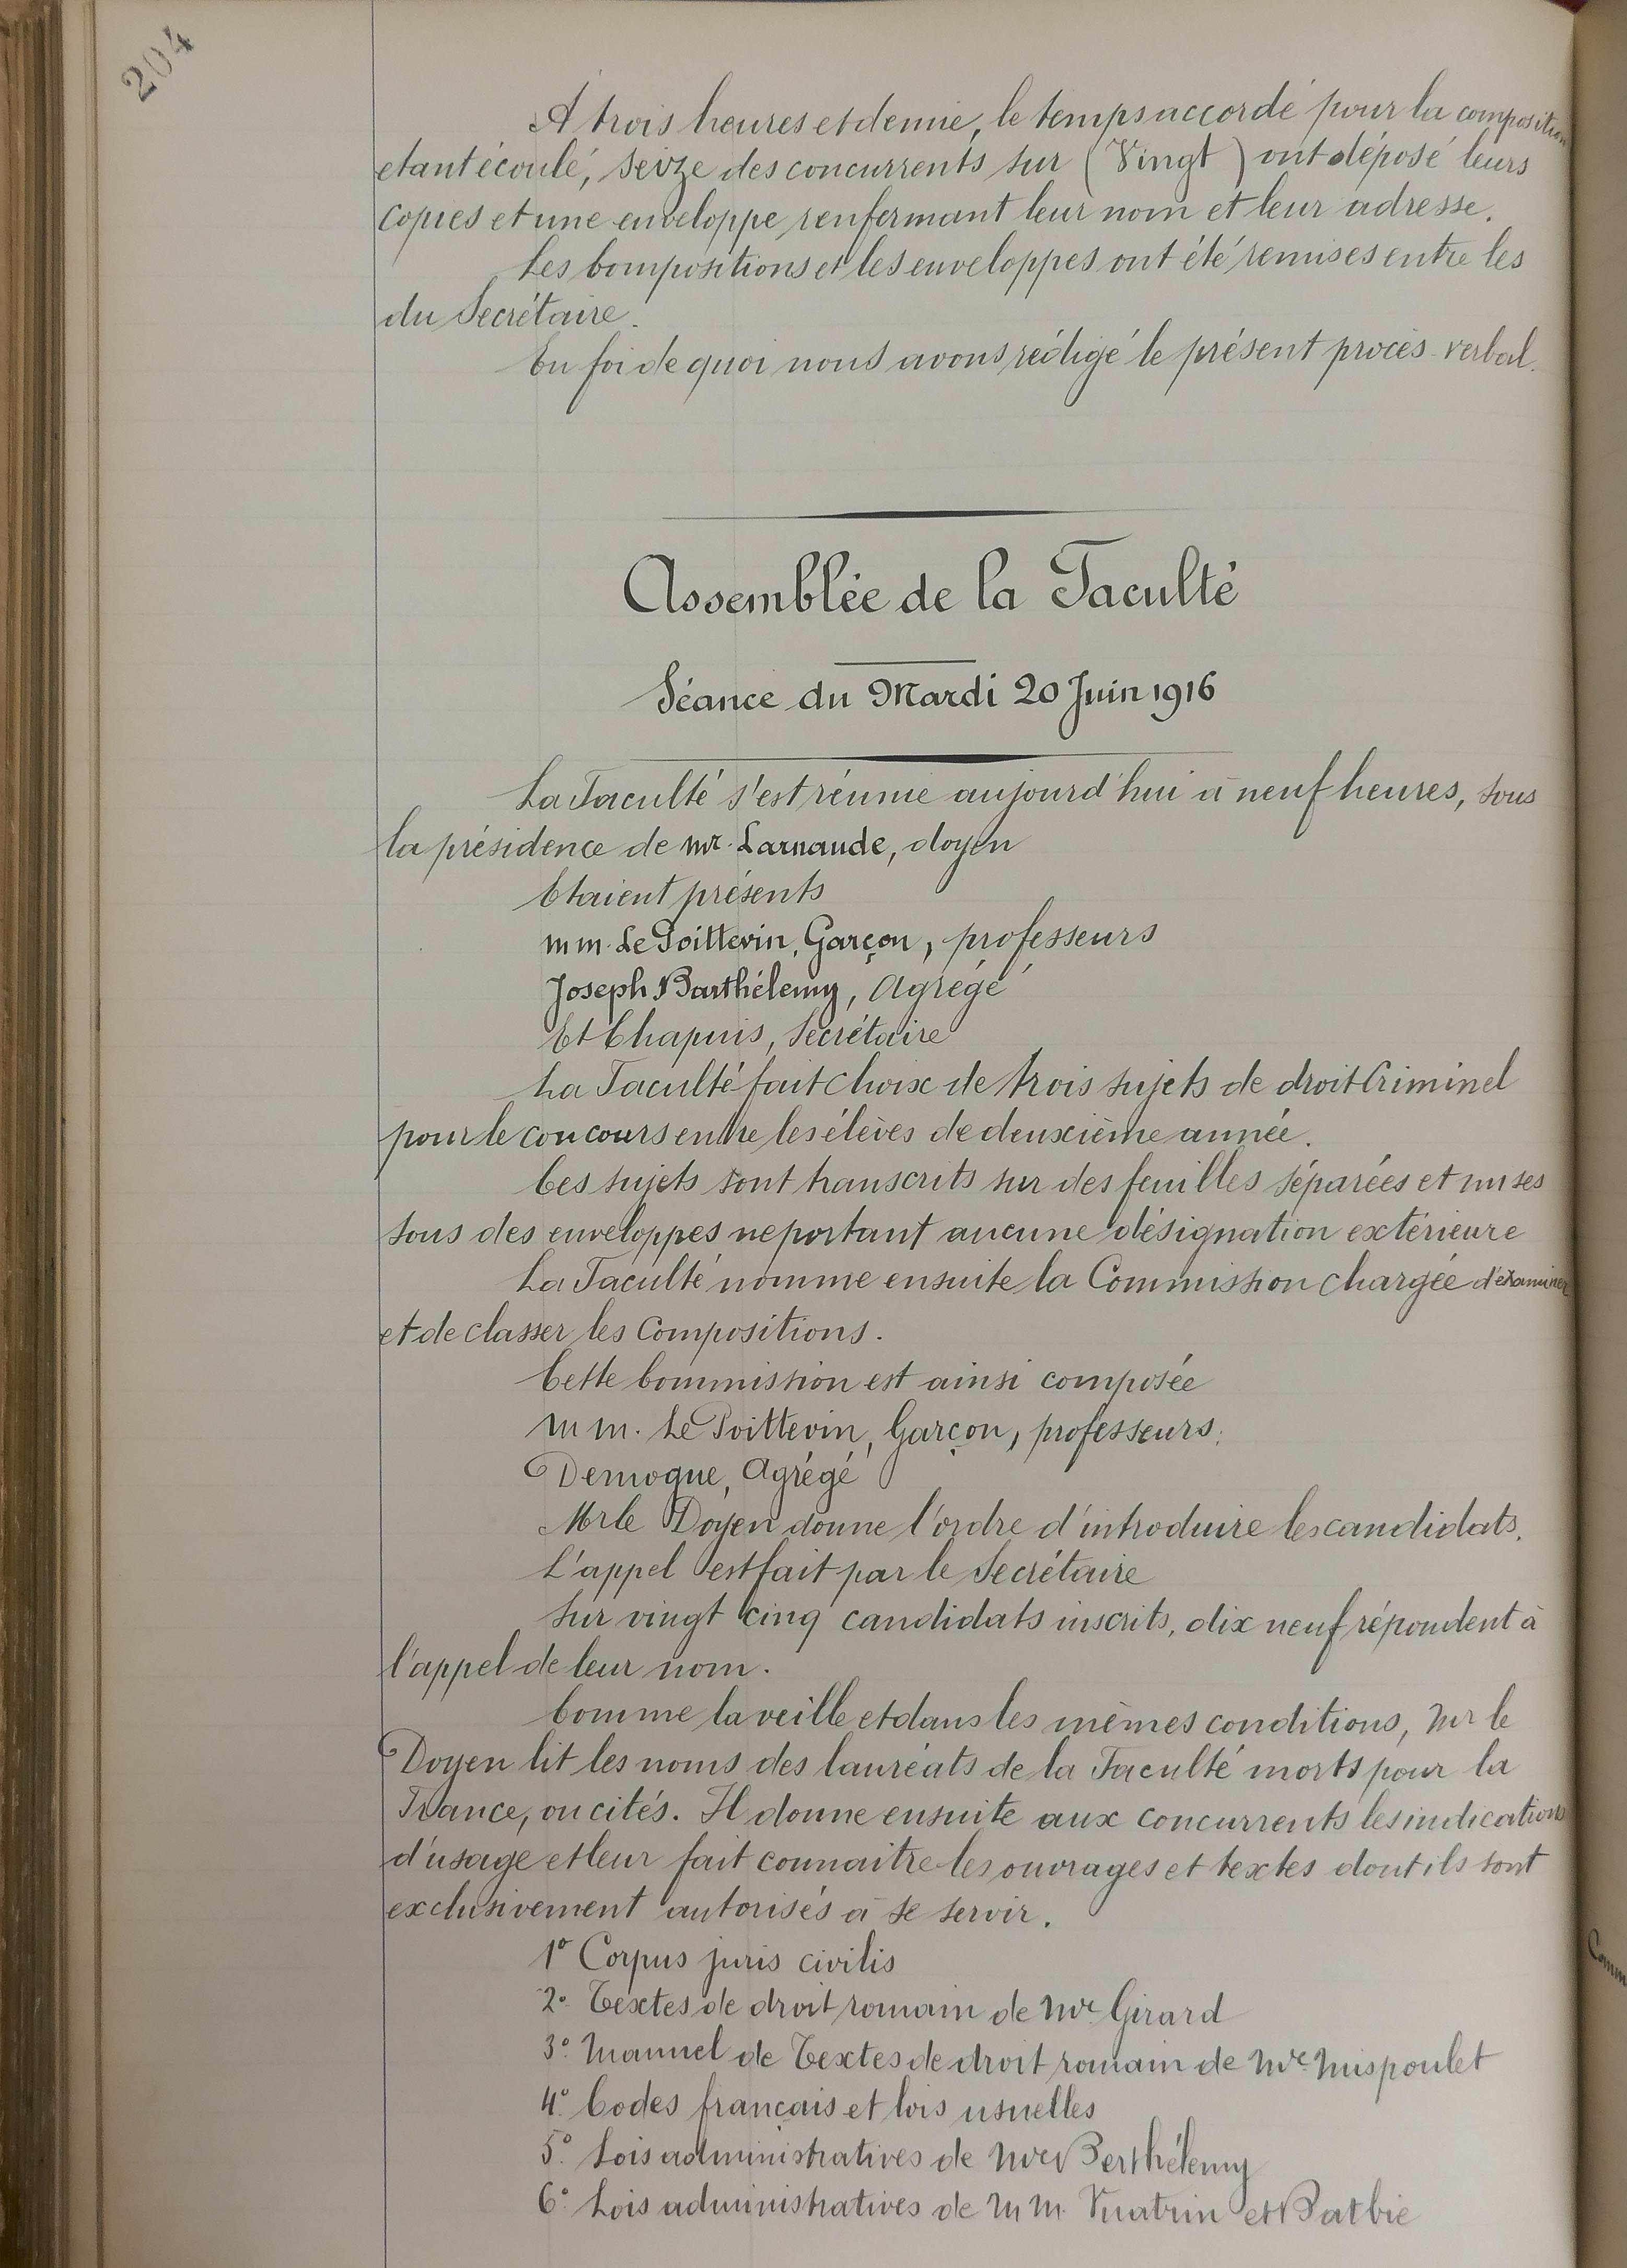 204
A trois heures et demie, le temps accordé pour la composition
etant écoulé, seize des concurrents sur (Vingt) ont déposé leurs
copies et une enveloppe renfermant leur nom et leur adresse.
Les Compositions et les enveloppes ont été remises entre les
du Secrétaire.
En foi de quoi nous avons rédigé le présent procès-verbal.
Assemblée de la Faculté
Séance du Mardi 20 Juin 1916
La Faculté s'est réunie aujourd'hui à neuf heures, sous
la présidence de Mr. Larnaude, doyen
Etaient présents
MM. Le Poittevin, Garçon, professeurs
Joseph Barthélemy, Agrégé
Et Chapuis, Secrétaire
La Faculté fait choix de trois sujets de droit Criminel
pour le concours entre les élèves de deuxième année.
Ces sujets sont transcrits sur des feuilles séparées et mises
sous des enveloppes ne portant aucune désignation extérieure
La Faculté nomme ensuite la Commission chargée d'examiner
et de classer les Compositions.
Cette Commission est ainsi composée
MM. Le Poittevin, Garçon, professeurs;
Demogue, Agrégé
Mr le Doyen donne l'ordre d'introduire les candidats.
L'appel est fait par le Secrétaire
Sur vingt cinq candidats inscrits, dix neuf répondent à
l'appel de leur nom.
Comme la veille et dans les mêmes conditions, Mr le
Doyen lit les noms des lauréats de la Faculté morts pour la
France, ou cités. Il donne ensuite aux concurrents les indications
d'usage et leur fait connaitre les ouvrages et textes dont ils sont
exclusivement autorisés à se servir.
1º Corpus juris civilis
2º Textes de droit romain de Mr Girard
3º Manuel de Textes de droit romain de Mr Mispoulet
4º Codes français et lois usuelles
5º Lois administratives de Mr Berthélemy
6º Lois administratives de MM. Vuatrin et Batbie
Comm